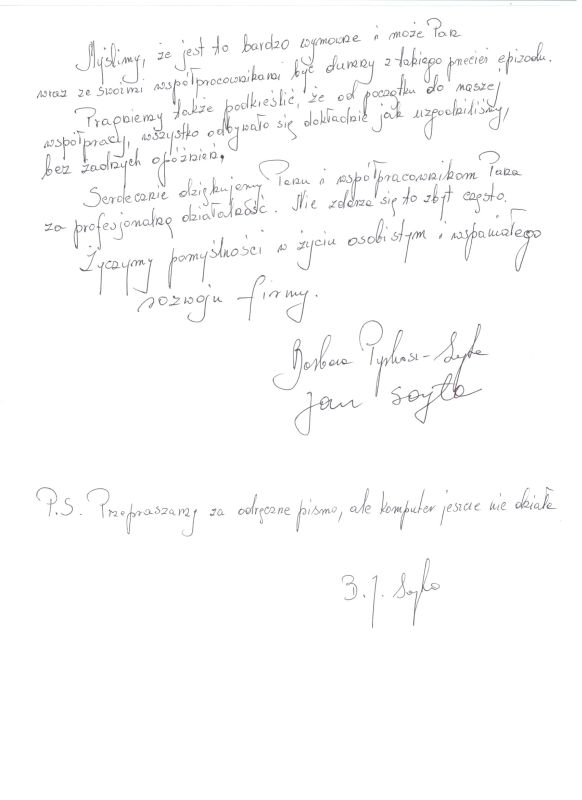 Myślimy, że jest to bardzo wymowne i może Pan
wraz ze swoimi współpracownikami być dumny z takiego przecież epizodu.
Pragniemy także podkreślić, że od początku do naszej
współpracy, wszystko odbywało się dokładnie jak uzgodniliśmy,
bez żadnych opóźnień.
Serdecznie dziękujemy Panu i współpracownikom Pana
za profesjonalną działalność. Nie zdarza się to zbyt często.
Życzymy pomyślności w życiu osobistym i wspaniałego
rozwoju firmy.
Barbara
Jan Szyło
P.S. Przepraszamy za odręczne pismo, ale komputer jeszcze nie działa
B. J.